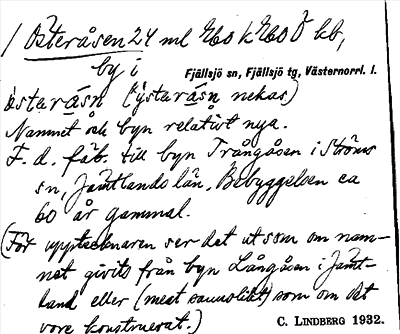 / Österåsen 24 ml Rbo k Rbo Ö kb,
by i Fjällsjö sn, Fjällsjö tg, Västernorrl. l.
östaråsn (ystaråsn nekas)
Namnet och byn relativt nya.
F. d. fäb. till byn Trångåsen i Ströms
sn, Jämtlands län. Bebyggelsen ca
60 år gammal.
(För upptecknaren ser det ut som om nam-
net givits från byn Långåsen i Jämt-
land eller (mest sannolikt) som om det
vore konstruerat.)
C. LINDBERG 1932.